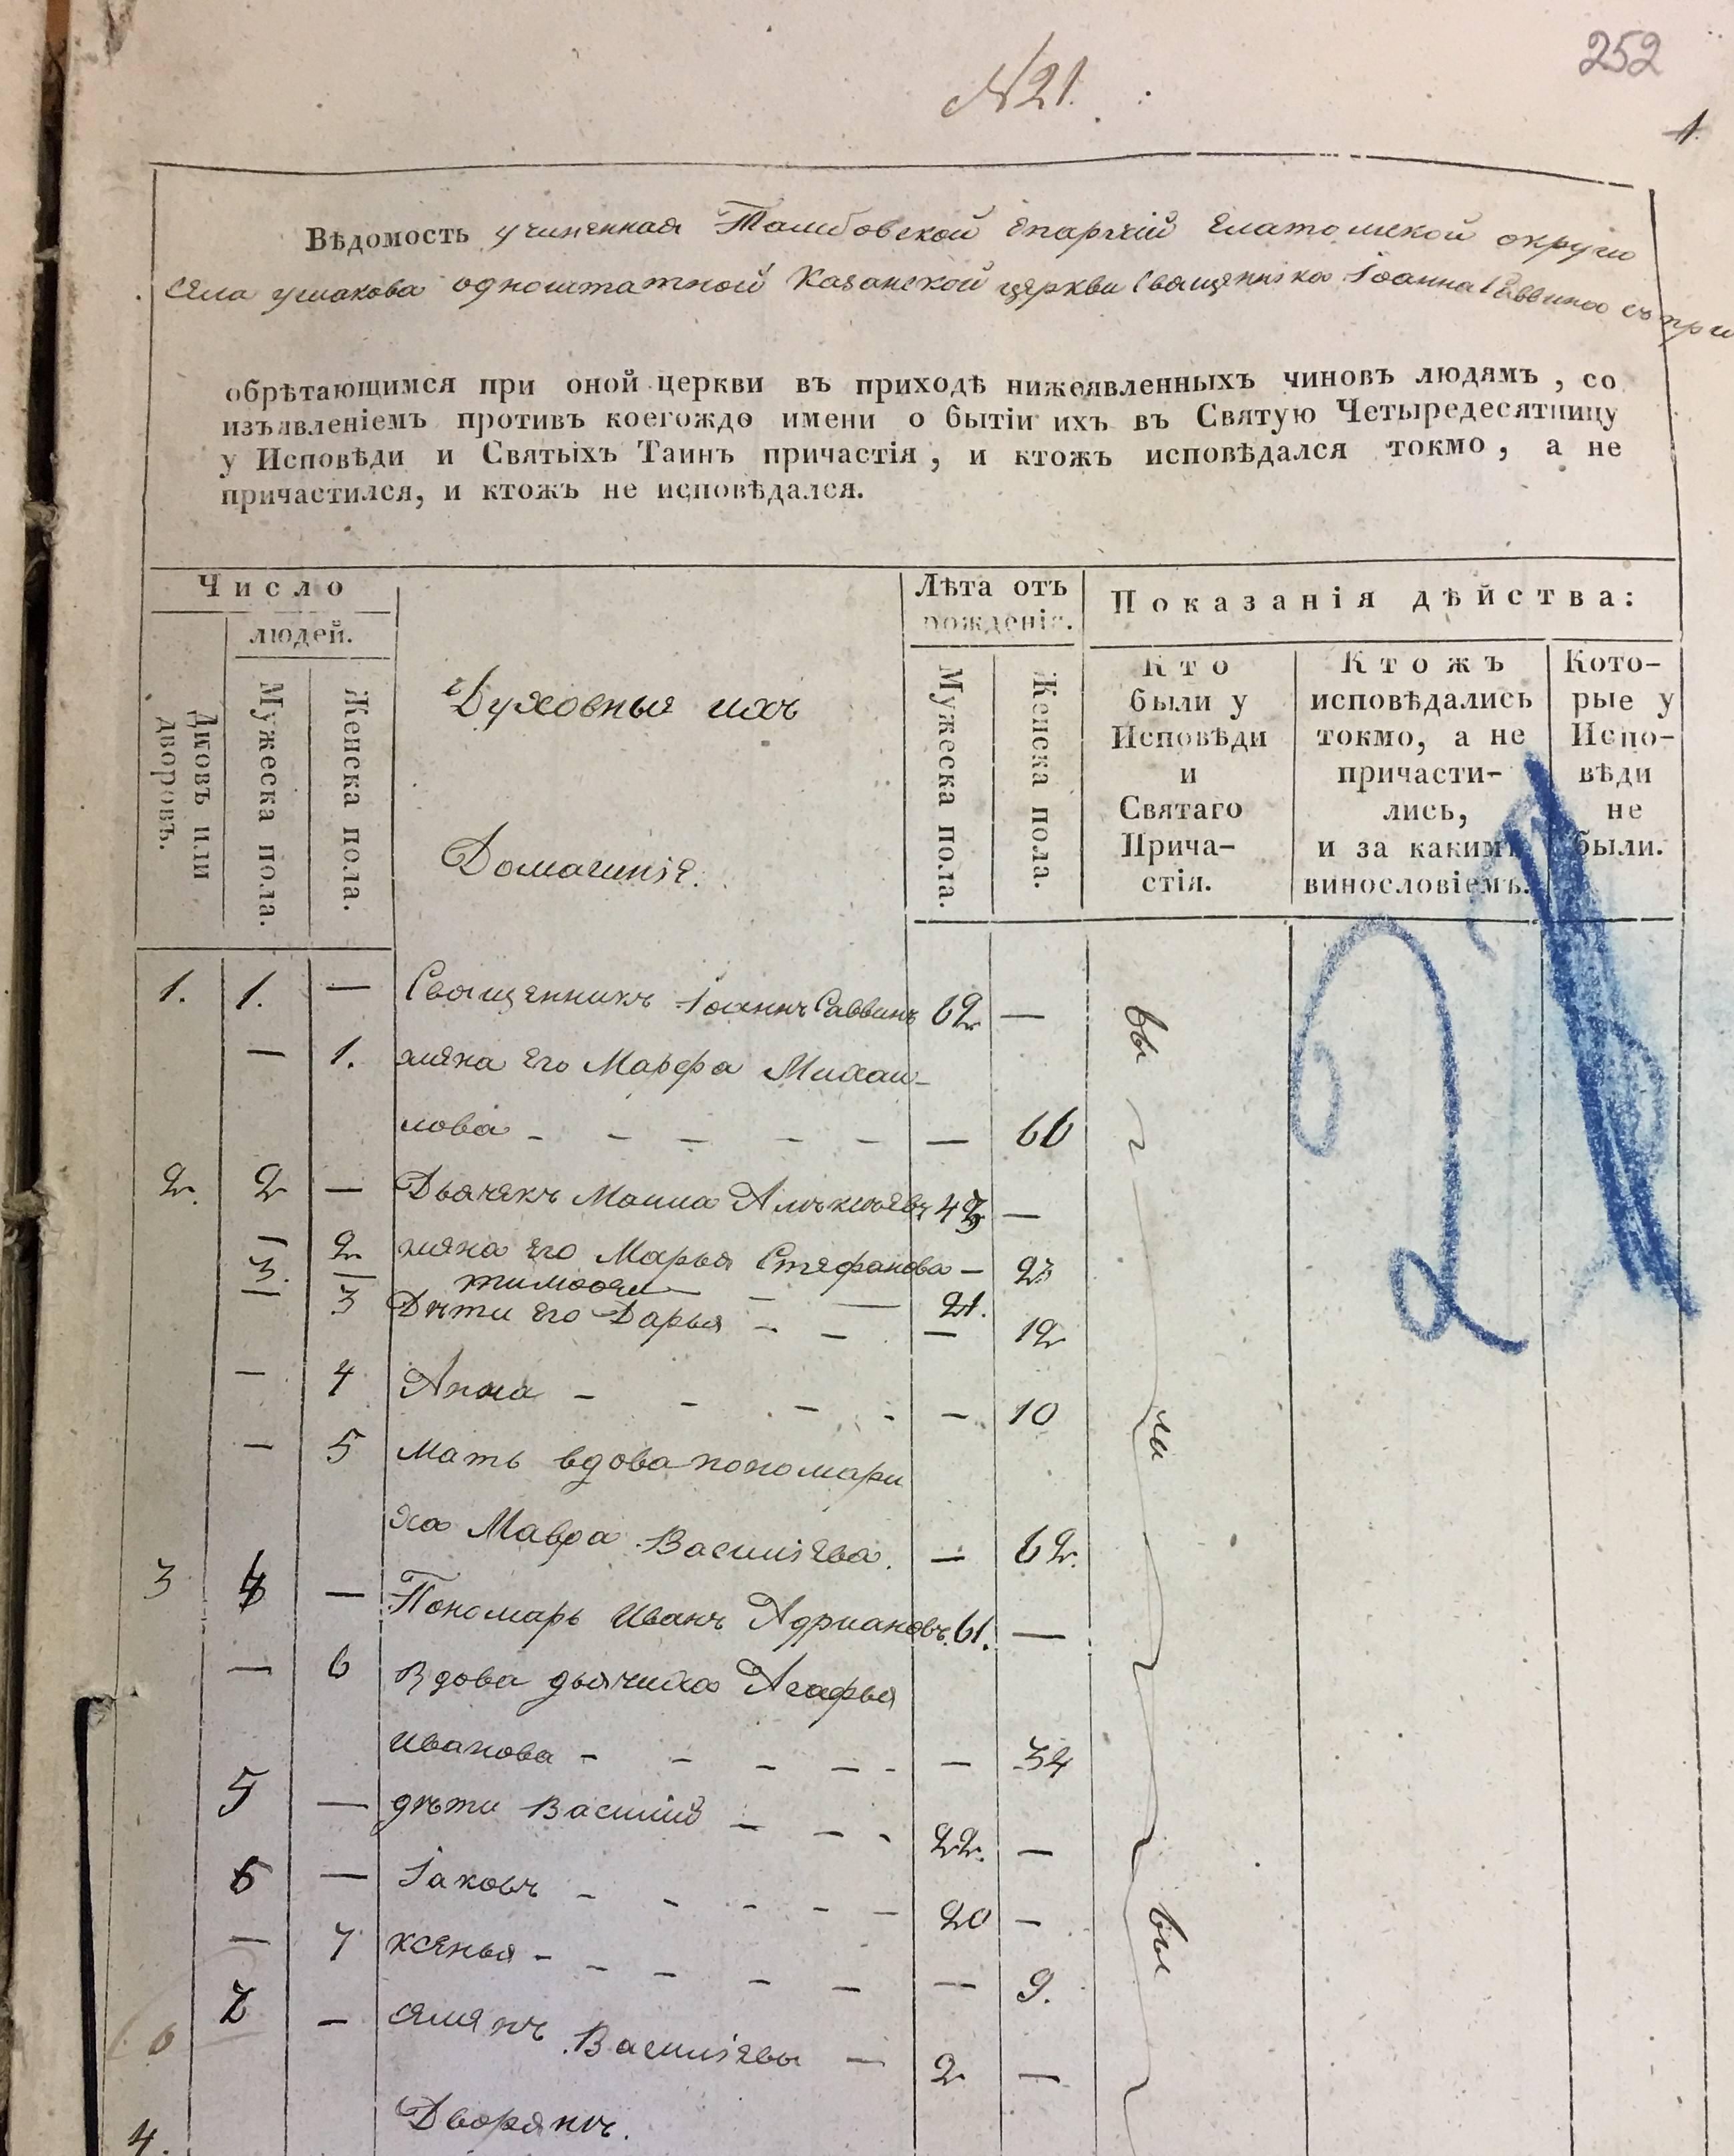 252
№ 21.
1.
Вѣдомость учиненная Тамбовской Епархіи Елатомской округи
села ушакова одноштатной Казанской церкви Священника Іоанна Саввина съ при
обрѣтающимся при оной церкви въ приходѣ нижеявленныхъ чиновъ людямъ, со
изъявленіемъ противъ коегождо имени о бытіи ихъ въ Святую Четыредесятницу
у Исповѣди и Святыхъ Таинъ причастія, и ктожъ исповѣдался токмо, а не
причастился, и ктожъ не исповѣдался.
Число
людей.
Домовъ или дворовъ.
Мужеска пола.
Женска пола.
Духовныя ихъ
Домашнія.
Лѣта отъ рожденія.
Мужеска пола.
Женска пола.
Показанія дѣйства:
Кто были у Исповѣди и Святаго Прича-стія.
Ктожъ исповѣдались токмо, а не причасти-лись, и за какимъ винословіемъ.
Кото-рые у Испо-вѣди не были.
1. 1. — Священникъ Іоаннъ Саввинъ 62 —
— 1. жена его Марфа Михаи-
лова - - - - - — 66
2. 2 — Дьячекъ Алѣксѣевъ —
— 2 жена его Марья Стефанова — 23
3. — - — 21.
— 3 Дѣти его Дарья - - — 12
— 4 Анна - - - - — 10
— 5 Мать вдова понамари
ха Мавра Василіева. — 62.
3 4 — Пономарь Иванъ Адріановъ. 61. —
— 6 Вдова дьячиха Агафья
Иванова - - - - - — 34
5 — дѣти Василій - - - 22. —
6 — Іаковъ - - - - - 20 —
— 7 ксенья - - - - - — 9.
7 - Василіевы — 2 —
Дворянъ.
4.
бы
ли
бы